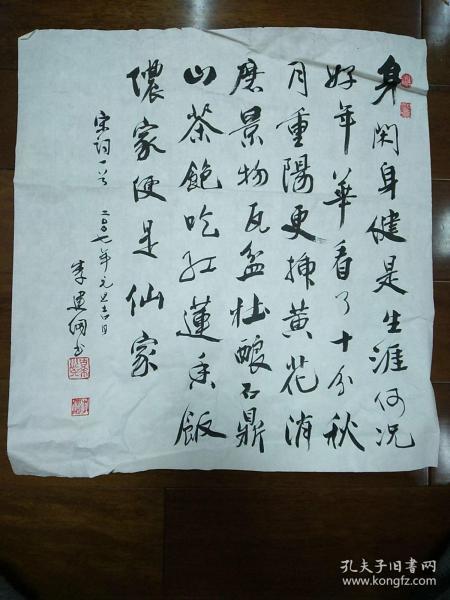 身闲身健是生涯何况
好年華看了十分秋
月重陽更插黄花消
磨景物瓦盆社酿石鼎
山茶飽吃红蓮香飯
儂家便是仙家
宋词一首 二〇〇七年元旦吉日
李建纲书
孔夫子旧书网
www.kongfz.com